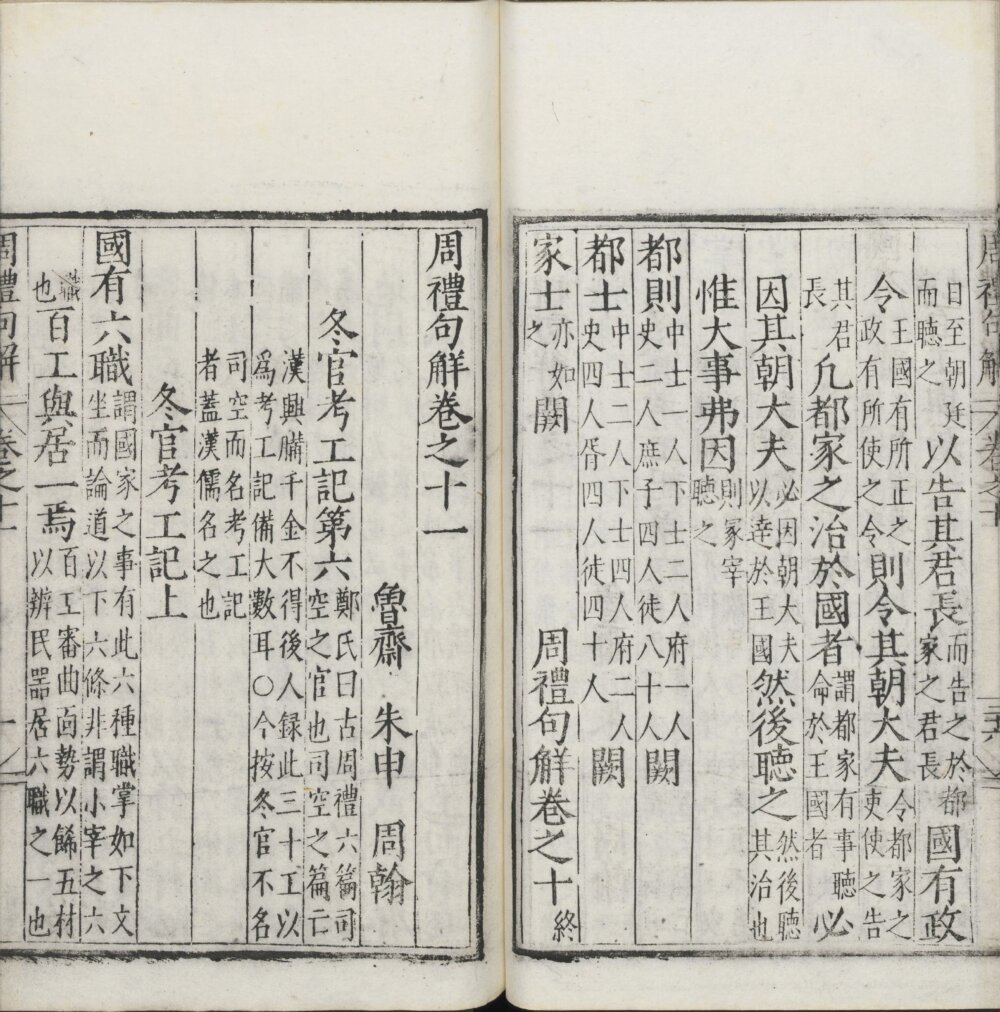 周禮句解 卷之十
日至朝廷而聽之以告其君長而告之於都家之君長國有政
令王國有所正之令政有所使之令則令其朝大夫令都家之吏使之告
其君長凡都家之治於國者謂都家有事聽命於王國者必
因其朝大夫必因朝大夫以達於王國然後聽之然後聽其治也
惟大事弗因則冢宰聽之
都則中士一人下士二人府一人史二人庶子四人徒八十人闕
都士中士二人下士四人府二人史四人胥四人徒四十人闕
家士亦如之闕 周禮句解卷之十終
周禮句解卷之十一
魯齋 朱申 周翰
冬官考工記第六鄭氏曰古周禮六篇司空之官也司空之篇亡
漢興購千金不得後人録此三十工以爲考工記備大數耳○今按冬官不名
司空而名考工記者蓋漢儒名之也
冬官考工記上
國有六職謂國家之事有此六種職掌如下文坐而論道以下六條非謂小宰之六
職也百工與居一焉百工審曲面勢以飭五材以辨民器居六職之一也
周禮句解 卷之十一 一